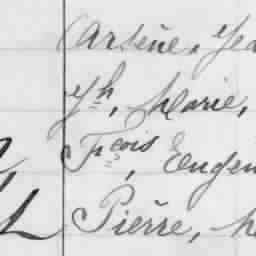 Arsène, Jea
Jh, Marie,
Fçois, Eugen
Pièrre,